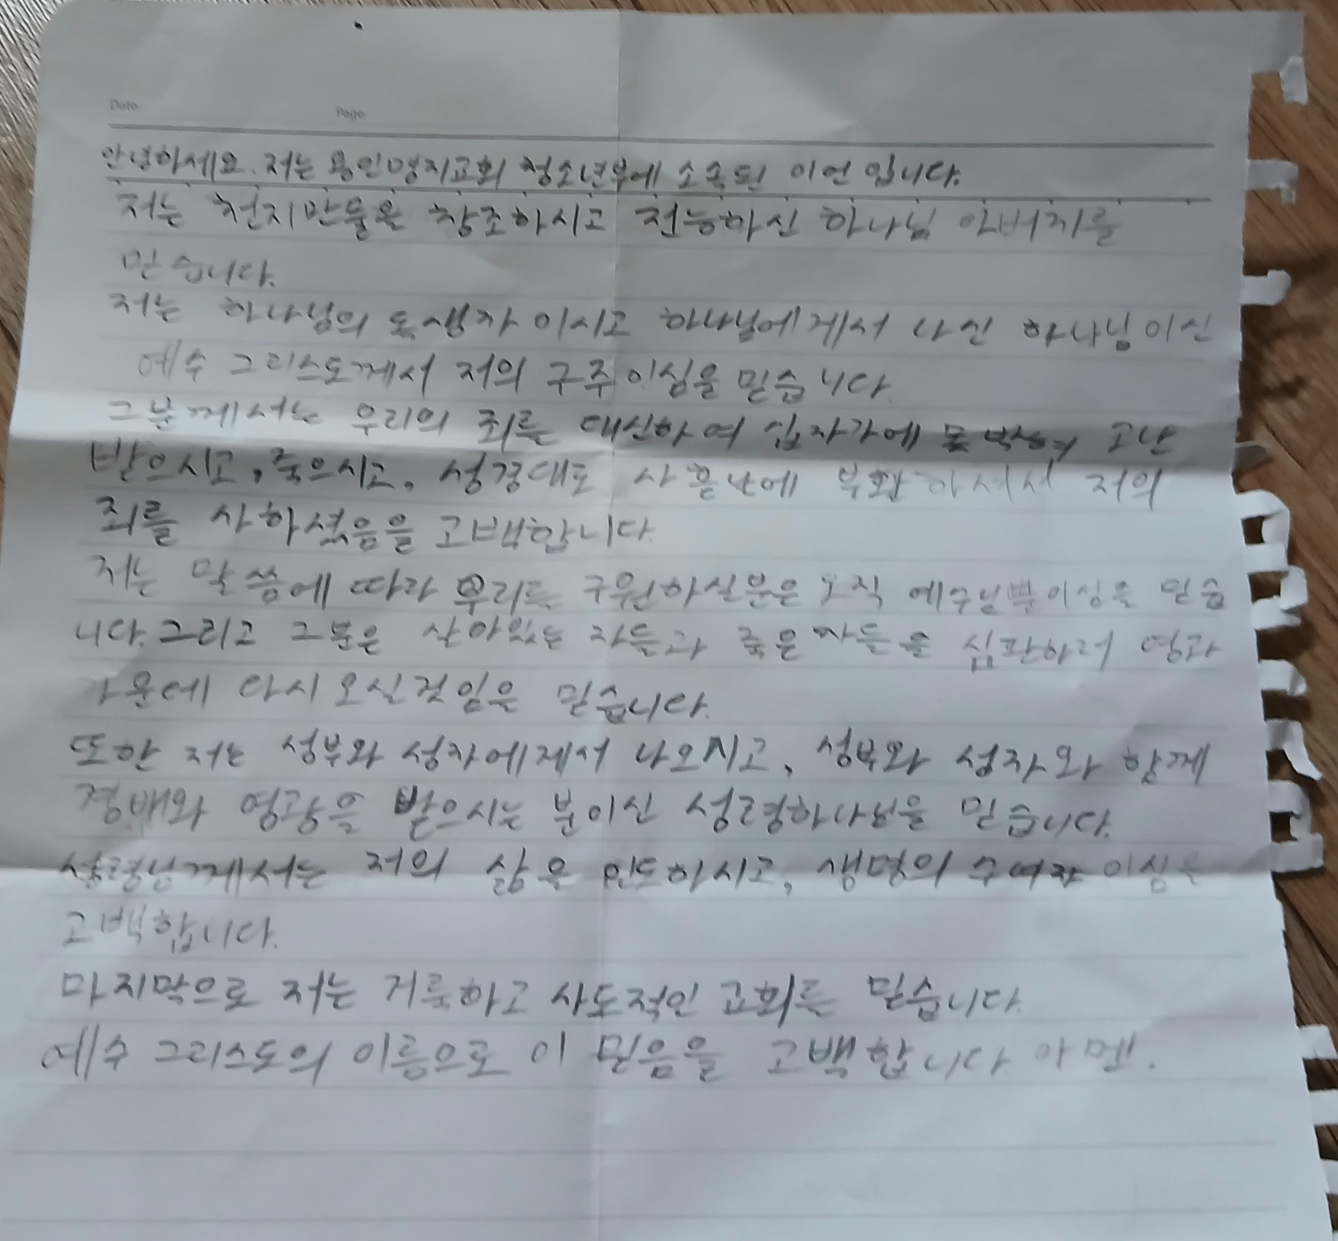 Date. Page
안녕하세요. 저는 용인명지교회 청소년부에 소속된 이언 입니다.
저는 천지만물을 창조하시고 전능하신 하나님 아버지를
믿습니다.
저는 하나님의 독생자 이시고 하나님에게서 나신 하나님이신
예수 그리스도께서 저의 구주이심을 믿습니다.
그분께서는 우리의 죄를 대신하여 십자가에 고난
받으시고, 죽으시고, 성경대로 사흗날에 부활하셔서 저의
죄를 사하셨음을 고백합니다.
저는 말씀에 따라 우리를 구원하실분은 오직 예수님뿐이심을 믿습
니다. 그리고 그분은 살아있는 자들과 죽은 자들을 심판하러 영광
가운데 다시 오실것임을 믿습니다.
또한 저는 성부와 성자에게서 나오시고, 성부와 성자와 함께
경배와 영광을 받으시는 분이신 성령하나님을 믿습니다.
성령님께서는 저의 삶을 인도하시고, 생명의 수여자 이심을
고백합니다.
마지막으로 저는 거룩하고 사도적인 교회를 믿습니다.
예수 그리스도의 이름으로 이 믿음을 고백합니다. 아멘.